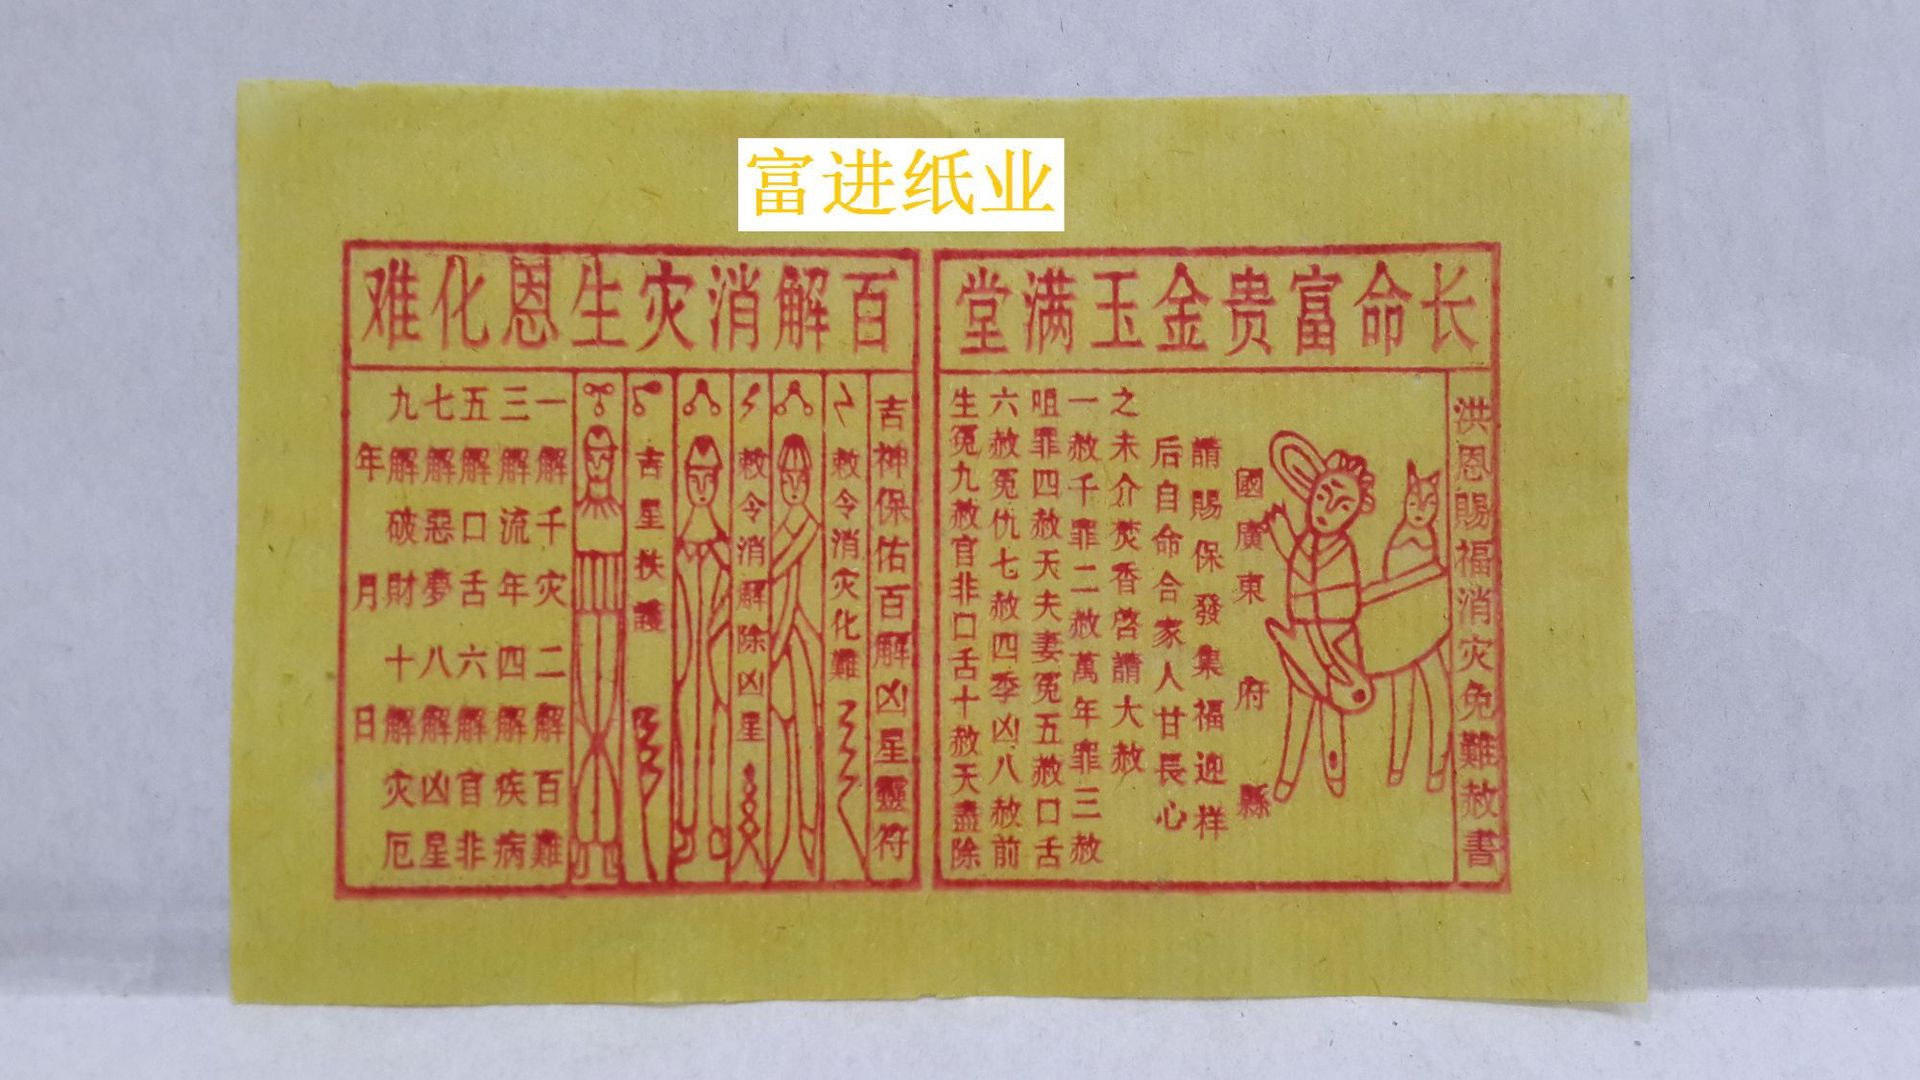 富进纸业
长命富贵金玉满堂
洪恩賜福消灾免難赦書
國廣東府縣
請賜保發集福迎样
后自命合家人甘長心
之未介焚香啓請大赦
一赦千罪二赦萬年罪三赦
咀罪四赦天夫妻冤五赦口舌
六赦冤仇七赦四季凶八赦前
生冤九赦官非口舌十赦天盡除
百解消灾生恩化难
吉神保佑百解凶星靈符
敕令消灾化難
敕令消解除凶星
吉星扶護
一解千灾二解百難
三解流年四解疾病
五解口舌六解官非
七解惡夢八解凶星
九解破財十解灾厄
年月日